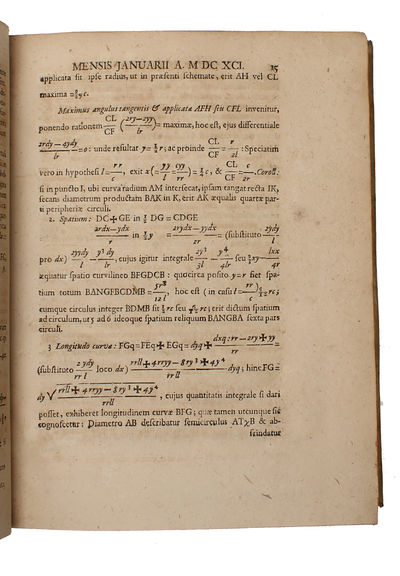 MENSIS JANUARII A. M DC XCI. 15
applicata sit ipse radius, ut in præsenti schemate, erit AH vel CL
maxima = c.
Maximus angulus tangentis & applicata AFH seu CFL invenitur,
ponendo rationem CL/CF (2ry-2yy/lr) = maximæ, hoc est, ejus differentiale
2rdy-4ydy/lr = 0: unde resultat y=½r; ac proinde CL/CF = r/2l: Speciatim
vero in hypothesi l=rr/c, exit x(=yy/l=cyy/rr)=¼c, & CL/CF=c/2r. Coroll.
si in puncto I, ubi curva radium AM intersecat, ipsam tangat recta IK,
secans diametrum productam BAK in K, erit AK æqualis quartæ par-
ti peripheriæ circuli.
2. Spatium: DC✠GE in ½ DG = CDGE
2rdx-ydx/r in ½ y = 2rydx-yydx/2r = (substituto 2ydy/l
pro dx) 2yydy/l - y³dy/lr, cujus integrale 2y³/3l - y⁴/4lr seu ⅔xy - lxx/4r
æquatur spatio curvilineo BFGDCB: quocirca posito y=r fiet spa-
tium totum BANGFBCDMB = 5r³/12l, hoc est (in casu l=rr/c) 5/12 rc;
cumque circulus integer BDMB sit ½rc seu 6/12 rc; erit dictum spatium
ad circulum, ut 5 ad 6 ideoque spatium reliquum BANGBA sexta pars
circuli.
3 Longitudo curvæ: FGq=FEq✠EGq = dyq✠ dxq: rr-2ry✠yy/rr =
(substituto 2ydy/l loco dx) rrll✠4rryy-8ry³✠4y⁴/rrll dyq; hinc FG=
dy√ rrll✠4rryy-8ry³✠4y⁴/rrll, cujus quantitatis integrale si dari
posset, exhiberet longitudinem curvæ BFG; quæ tamen utcunque sic
cognoscetur: Diametro AB describatur semicirculus ATχB & ab-
scindatur